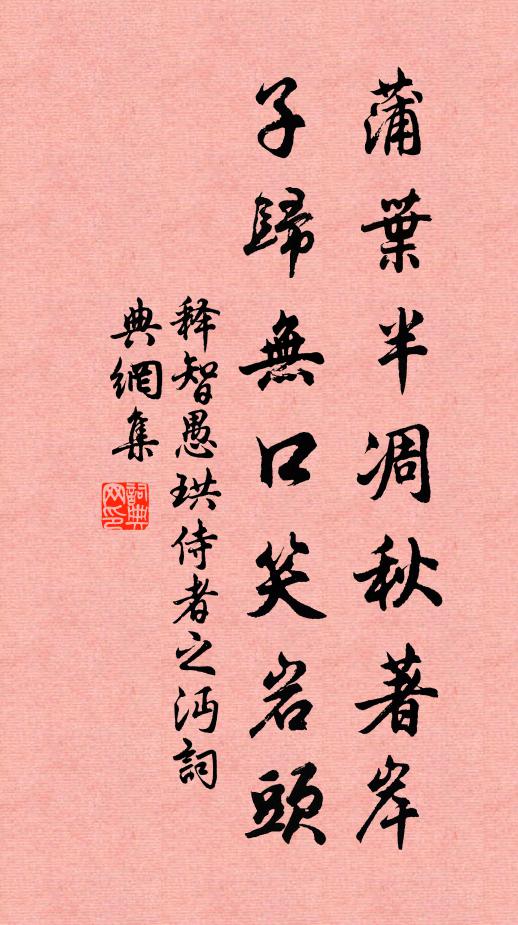 蒲葉半凋秋著岸
子歸無口笑岩頭
释智愚珙侍者之沔詞
典網集
詞典
网印